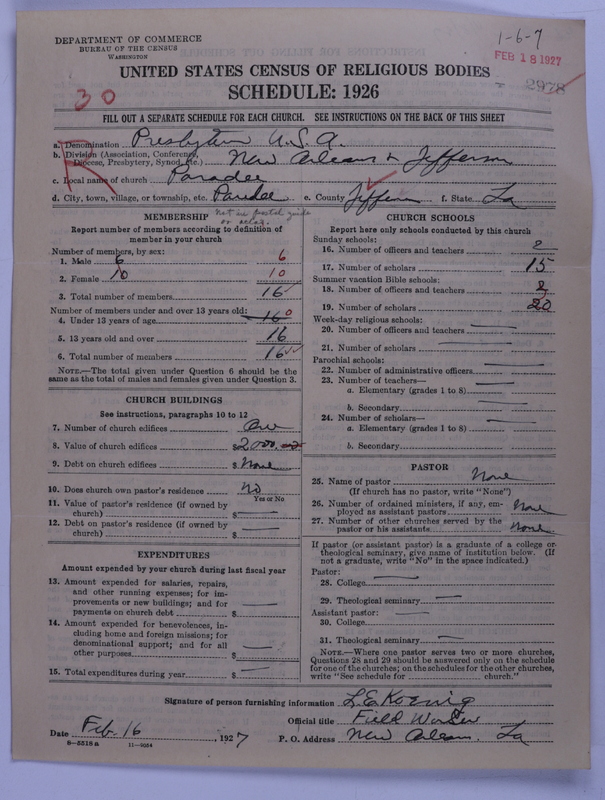 DEPARTMENT OF COMMERCE
BUREAU OF THE CENSUS
WASHINGTON
1-6-7
FEB 18 1927
2978
UNITED STATES CENSUS OF RELIGIOUS BODIES
SCHEDULE: 1926
30
FILL OUT A SEPARATE SCHEDULE FOR EACH CHURCH. SEE INSTRUCTIONS ON THE BACK OF THIS SHEET
R
a. Denomination Presbyterian U.S.A.
b. Division (Association, Conference, Diocese, Presbytery, Synod, etc.) New Orleans & Jefferson
c. Local name of church Paradee
d. City, town, village, or township, etc. Paradee e. County Jefferson f. State La
not in postal guide
or atlas.
MEMBERSHIP
Report number of members according to definition of
member in your church
Number of members, by sex:
1. Male 6 6
2. Female 10 10
3. Total number of members 16
Number of members under and over 13 years old:
4. Under 13 years of age 16 0
5. 13 years old and over 16
6. Total number of members 16
NOTE.—The total given under Question 6 should be the
same as the total of males and females given under Question 3.
CHURCH BUILDINGS
See instructions, paragraphs 10 to 12
7. Number of church edifices One
8. Value of church edifices $2000.00
9. Debt on church edifices $ None
10. Does church own pastor's residence No
Yes or No
11. Value of pastor's residence (if owned by
church) $
12. Debt on pastor's residence (if owned by
church) $
EXPENDITURES
Amount expended by your church during last fiscal year
13. Amount expended for salaries, repairs,
and other running expenses; for im-
provements or new buildings; and for
payments on church debt $
14. Amount expended for benevolences, in-
cluding home and foreign missions; for
denominational support; and for all
other purposes $
15. Total expenditures during year $
CHURCH SCHOOLS
Report here only schools conducted by this church
Sunday schools:
16. Number of officers and teachers 2
17. Number of scholars 15
Summer vacation Bible schools:
18. Number of officers and teachers 2
19. Number of scholars 20
Week-day religious schools:
20. Number of officers and teachers
21. Number of scholars
Parochial schools:
22. Number of administrative officers
23. Number of teachers—
a. Elementary (grades 1 to 8)
b. Secondary
24. Number of scholars—
a. Elementary (grades 1 to 8)
b. Secondary
PASTOR
25. Name of pastor None
(If church has no pastor, write "None")
26. Number of ordained ministers, if any, em-
ployed as assistant pastors None
27. Number of other churches served by the
pastor or his assistants None
If pastor (or assistant pastor) is a graduate of a college or
theological seminary, give name of institution below. (If
not a graduate, write "No" in the space indicated.)
Pastor:
28. College
29. Theological seminary
Assistant pastor:
30. College
31. Theological seminary
NOTE.—Where one pastor serves two or more churches,
Questions 28 and 29 should be answered only on the schedule
for one of the churches; on the schedules for the other churches,
write "See schedule for church."
Signature of person furnishing information L. E. Koenig
Official title Field Worker
Date Feb. 16, 1927 P. O. Address New Orleans, La
8-5518a 11-9054